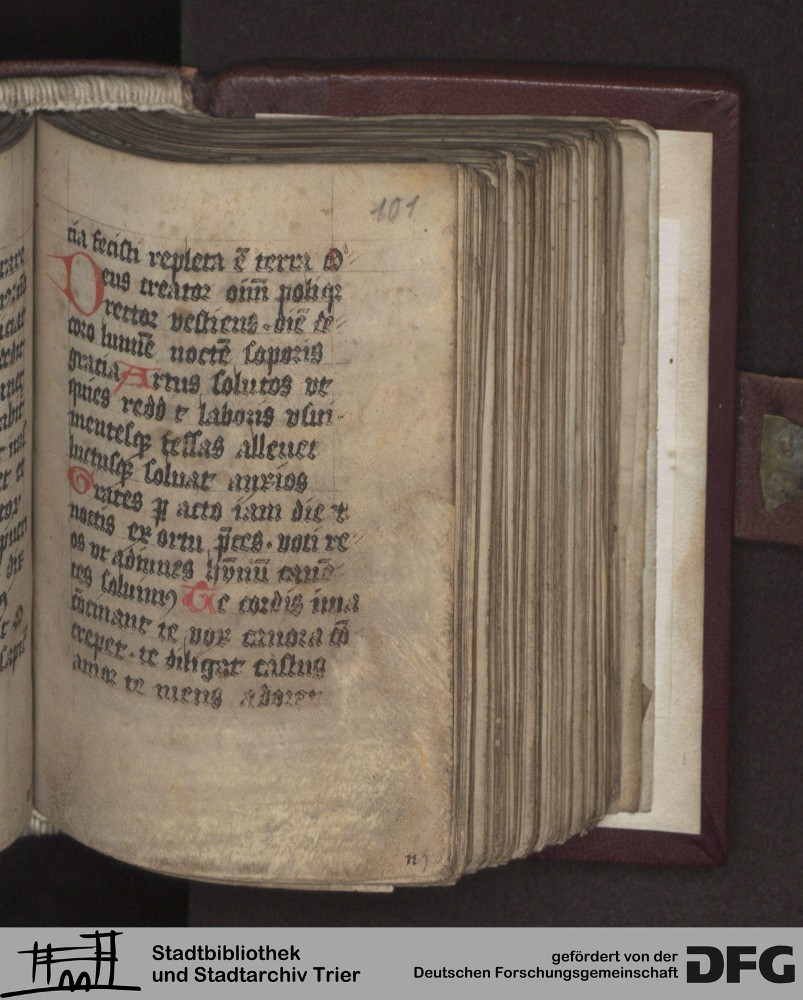 101
cia fecisti repleta ē terra
Deus creator oīm poliqꝫ
rector vestiens diē de
coro lumīe noctē soporis
gracia Artus solutos vt
quies redd t laboris vsui
mentesqꝫ fessas alleuet
luctusqꝫ soluat anxios
Grates p acto iam die t
noctis exortu p̄ces voti re
os vt adiuues hȳnū canē
tes soluimꝰ Te cordis ima
cōcinant te vox canora cō
crepet te diligat castus
amor te mens adoret
Stadtbibliothek
und Stadtarchiv Trier
gefördert von der
Deutschen Forschungsgemeinschaft
DFG